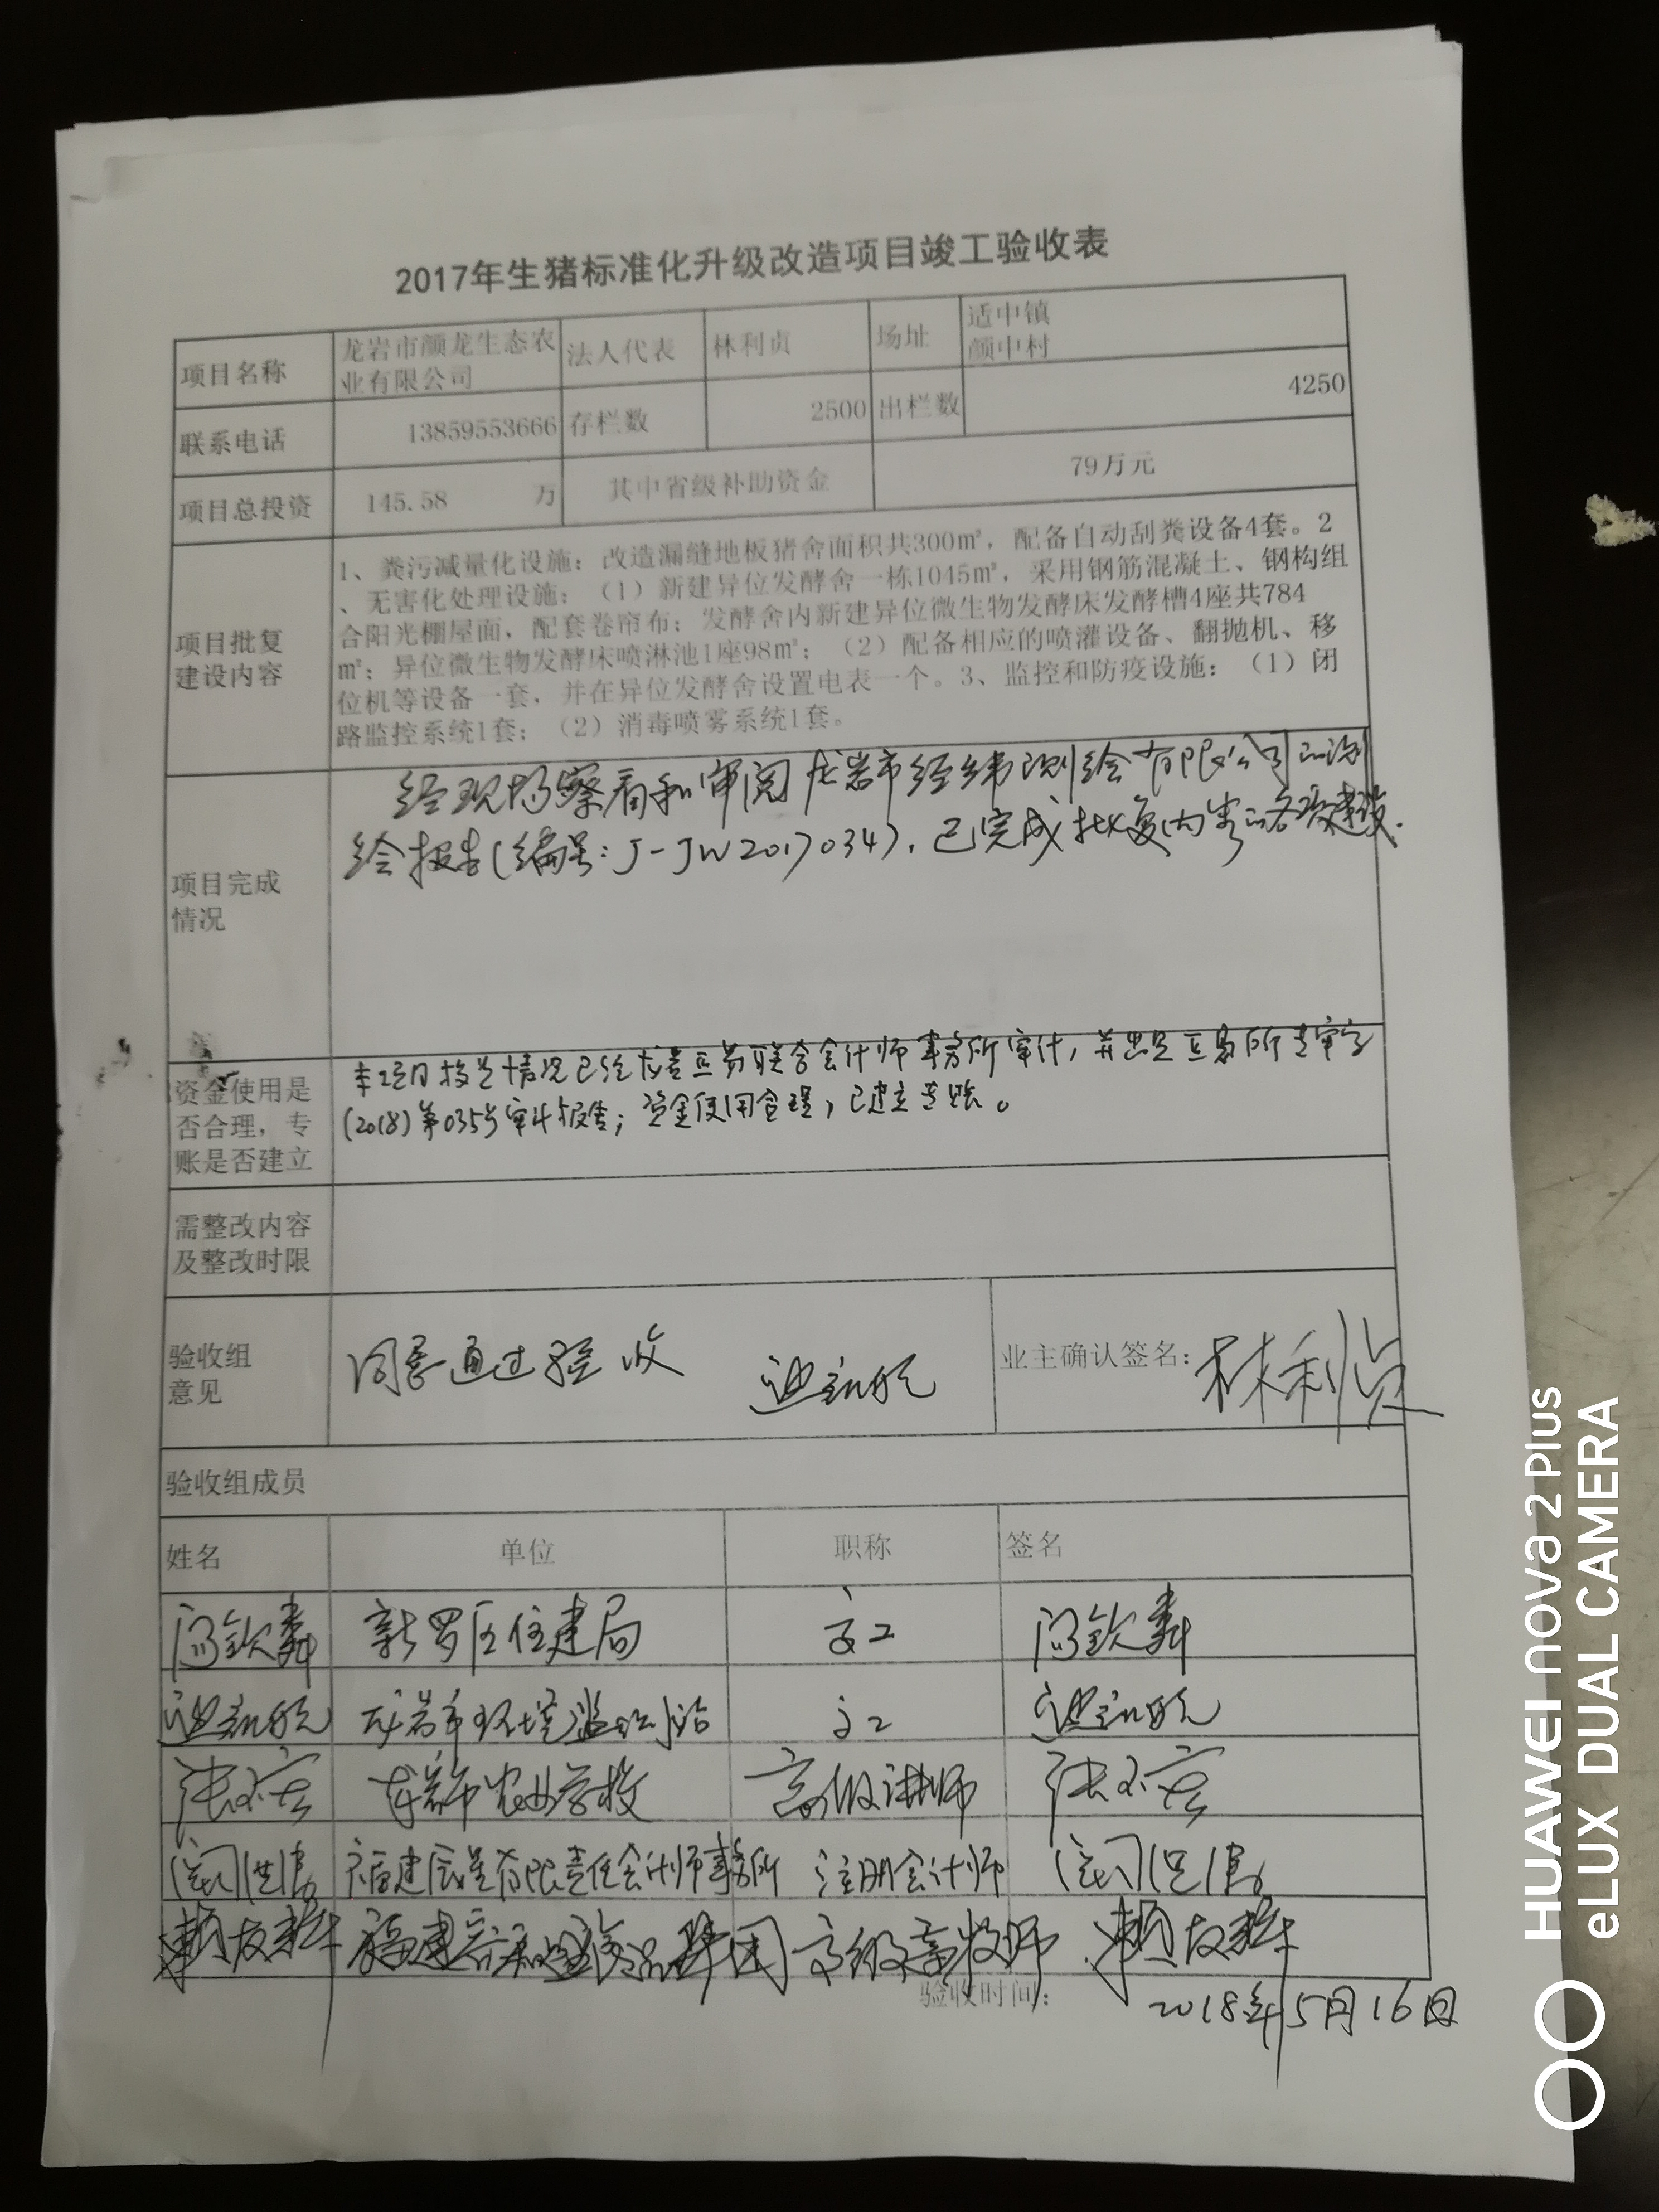 2017年生猪标准化升级改造项目竣工验收表
项目名称
龙岩市颜龙生态农
业有限公司
法人代表
林利贞
场址
适中镇
颜中村
联系电话
13859553666
存栏数
2500
出栏数
4250
项目总投资
145.58 万
其中省级补助资金
79万元
项目批复
建设内容
1、粪污减量化设施：改造漏缝地板猪舍面积共300㎡，配备自动刮粪设备4套。2
、无害化处理设施：（1）新建异位发酵舍一栋1045㎡，采用钢筋混凝土、钢构组
合阳光棚屋面，配套卷帘布；发酵舍内新建异位微生物发酵床发酵槽4座共784
㎡；异位微生物发酵床喷淋池1座98㎡；（2）配备相应的喷灌设备、翻抛机、移
位机等设备一套，并在异位发酵舍设置电表一个。3、监控和防疫设施：（1）闭
路监控系统1套；（2）消毒喷雾系统1套。
项目完成
情况
经现场察看和审阅龙岩市经纬测绘有限公司的测
绘报告(编号:J-JW2017034)，已完成批复内容的各项建设.
资金使用是
否合理，专
账是否建立
本项目投资情况已经龙岩立易联合会计师事务所审计，并出具立易所专审字
(2018)第035号审计报告；资金使用合理，已建立专账。
需整改内容
及整改时限
验收组
意见
同意通过验收
业主确认签名：
林利贞
验收组成员
姓名
单位
职称
签名
新罗区住建局
高工
龙岩市环境监测站
高工
龙岩市农业学校
高级讲师
福建辰星有限责任会计师事务所
注册会计师
福建 集团
高级畜牧师
赖友辉
验收时间：
2018年5月16日
HUAWEI nova 2 Plus
eLUX DUAL CAMERA